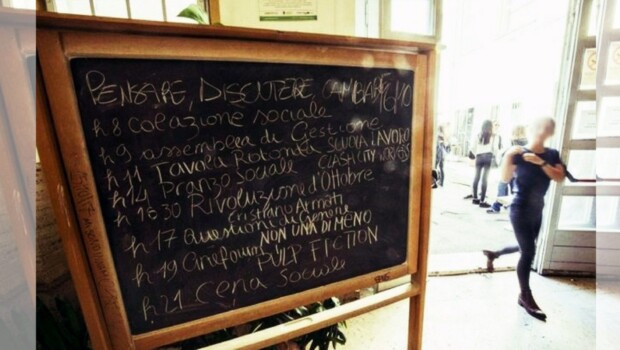 PENSARE, DISCUTERE, CAMBIARE
h 8 colazione sociale
h 9 assemblea di Gestione
h 11 Tavola Rotonda SCUOLA LAVORO
CLASH CITY WORKERS
h 14 Pranzo Sociale
h 16 30 Rivoluzione d'Ottobre
Cristiano Armati
h 17 Questioni di Genere
NON UNA DI MENO
h 19 Cineforum PULP FICTION
h 21 Cena Sociale